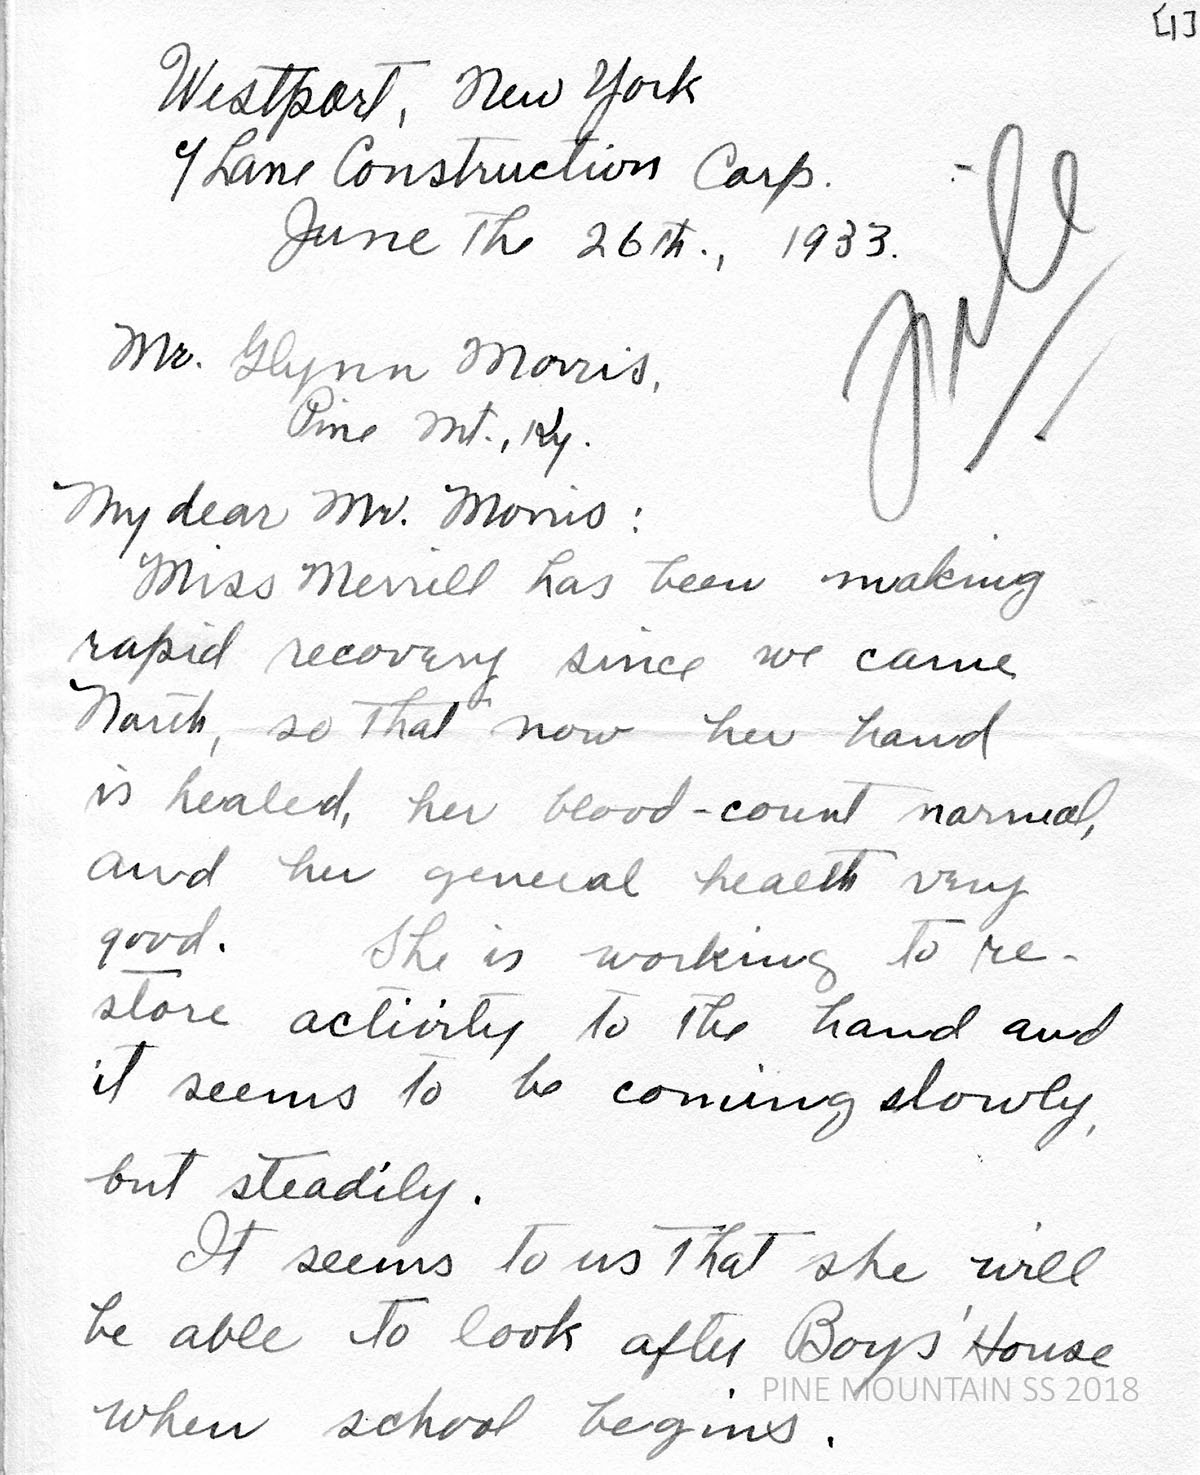 [1]
Westport, New York
c/ Lane Construction Corp.
June the 26th., 1933.
File
Mr. Glynn Morris,
Pine Mt., Ky.
My dear Mr. Morris:
Miss Merrill has been making
rapid recovery since we came
North, so that now her hand
is healed, her blood-count normal,
and her general health very
good. She is working to re-
store activity to the hand and
it seems to be coming slowly,
but steadily.
It seems to us that she will
be able to look after Boys' House
PINE MOUNTAIN SS 2018
when school begins.